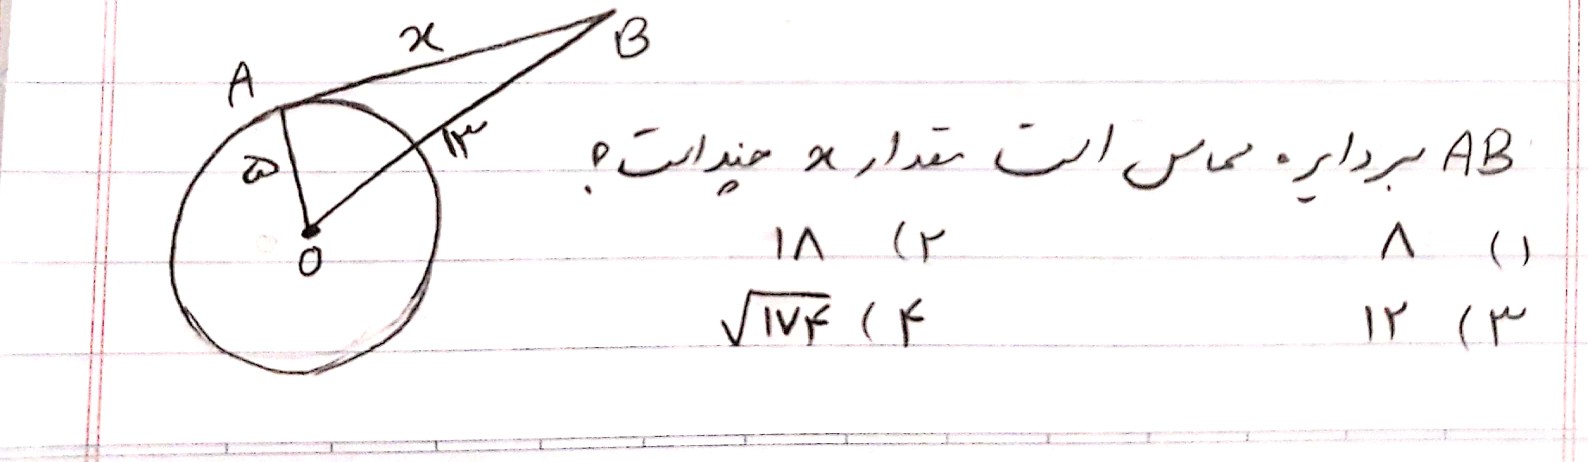 x
B
A
۵
۱۳
O
AB بر دایره مماس است مقدار x چند است؟
۱) ۸ ۲) ۱۸
۳) ۱۲ ۴) √۱۷۴